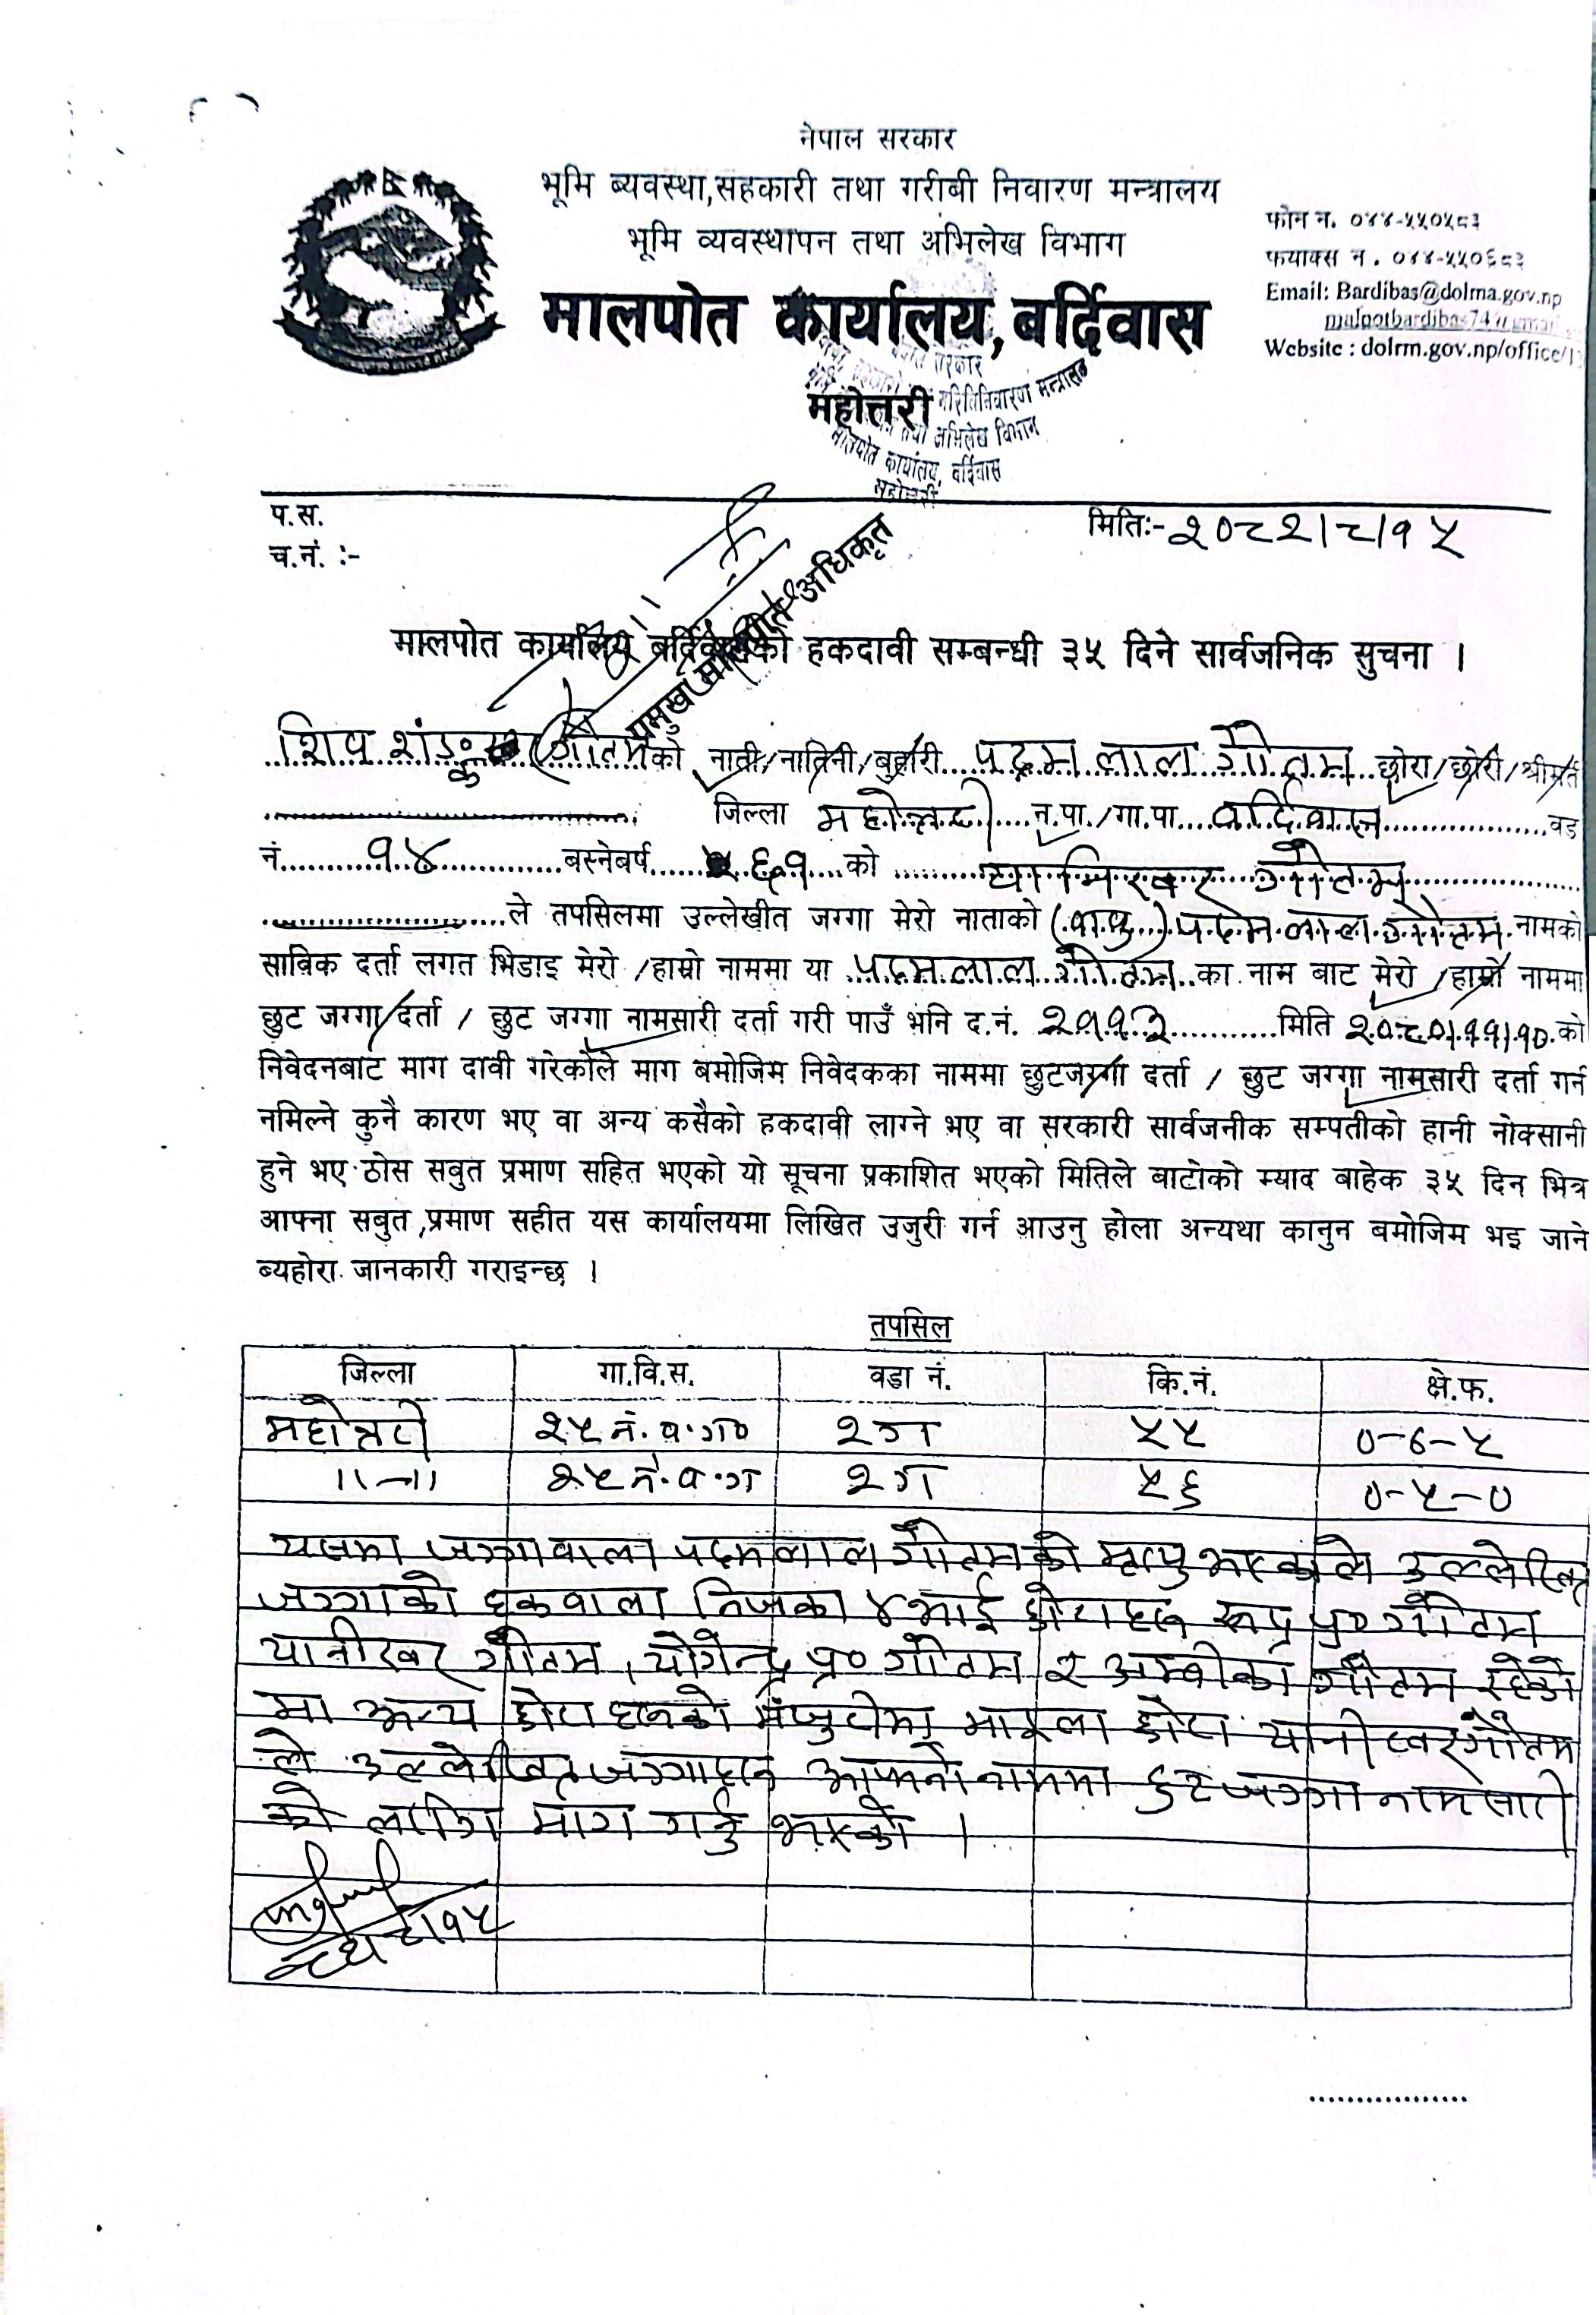 नेपाल सरकार
भूमि ब्यवस्था,सहकारी तथा गरीबी निवारण मन्त्रालय
भूमि व्यवस्थापन तथा अभिलेख विभाग
मालपोत कार्यालय,बर्दिवास
महोत्तरी
फोन न. ०४४-५५०५८३
फयाक्स न . ०४४-५५०६८३
Email: Bardibas@dolma.gov.np
malpotbardibas74@gmail
Website : dolrm.gov.np/office/1
गरिविनिवारण मन्त्रालय
तथा अभिलेख विभाग
मालपोत कार्यालय, बर्दिवास
महोत्तरी
प.स.
च.नं. :-
मितिः-२०८२।८।१५
प्रमुख मालपोत अधिकृत
मालपोत कार्यालय बर्दिवासको हकदावी सम्बन्धी ३५ दिने सार्वजनिक सुचना ।
शिव शंकर गौतमको नाती/नातिनी/बुहारी पदम लाल गौतम छोरा/छोरी/श्रीमती
जिल्ला महोत्तरी न.पा./गा.पा. वर्दिवास वडा
नं. १४ बस्नेबर्ष ६१ को यानिस्वर गौतम
ले तपसिलमा उल्लेखीत जग्गा मेरो नाताको (बाबु) पदम लाल गौतम नामको
साविक दर्ता लगत भिडाइ मेरो /हाम्रो नाममा या पदमलाल गौतम का नाम बाट मेरो /हाम्रो नाममा
छुट जग्गा/दर्ता / छुट जग्गा नामसारी दर्ता गरी पाउँ भनि द.नं. २११३ मिति २०८०।११।१० को
निवेदनबाट माग दावी गरेकोले माग बमोजिम निवेदकका नाममा छुटजग्गा दर्ता / छुट जग्गा नामसारी दर्ता गर्न
नमिल्ने कुनै कारण भए वा अन्य कसैको हकदावी लाग्ने भए वा सरकारी सार्वजनीक सम्पतीको हानी नोक्सानी
हुने भए ठोस सबुत प्रमाण सहित भएको यो सूचना प्रकाशित भएको मितिले बाटोको म्याद बाहेक ३५ दिन भित्र
आफ्ना सबुत ,प्रमाण सहीत यस कार्यालयमा लिखित उजुरी गर्न आउनु होला अन्यथा कानुन बमोजिम भइ जाने
ब्यहोरा जानकारी गराइन्छ ।
तपसिल
जिल्ला गा.वि.स. वडा नं. कि.नं. क्षे.फ.
महोत्तरी २५ नं.व.गा० २ग ५५ ०-६-५
〃-〃 २५ नं.व.गा २ग ५६ ०-५-०
यसमा जग्गावाला पदमलाल गौतमको मृत्यु भएकाले उल्लेखित
जग्गाको हकवाला निजका ४ भाई छोराहरु रूद्र प्र० गौतम
यानीस्वर गौतम, योगेन्द्र प्र० गौतम र अम्बीका गौतम रहेको
मा अन्य छोराहरुको मंजुरीमा माइला छोरा यानीस्वर गौतम
ले उल्लेखित जग्गाहरु आफ्नो नाममा छुटजग्गा नामसारी
को लागि माग गर्नु भएको ।
८।१५